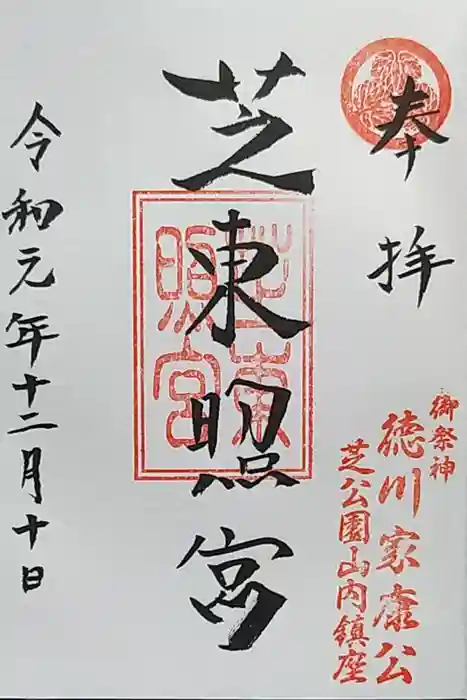 奉拝
御祭神
徳川家康公
芝公園山内鎮座
芝東照宮
芝東照宮
令和元年十二月十日